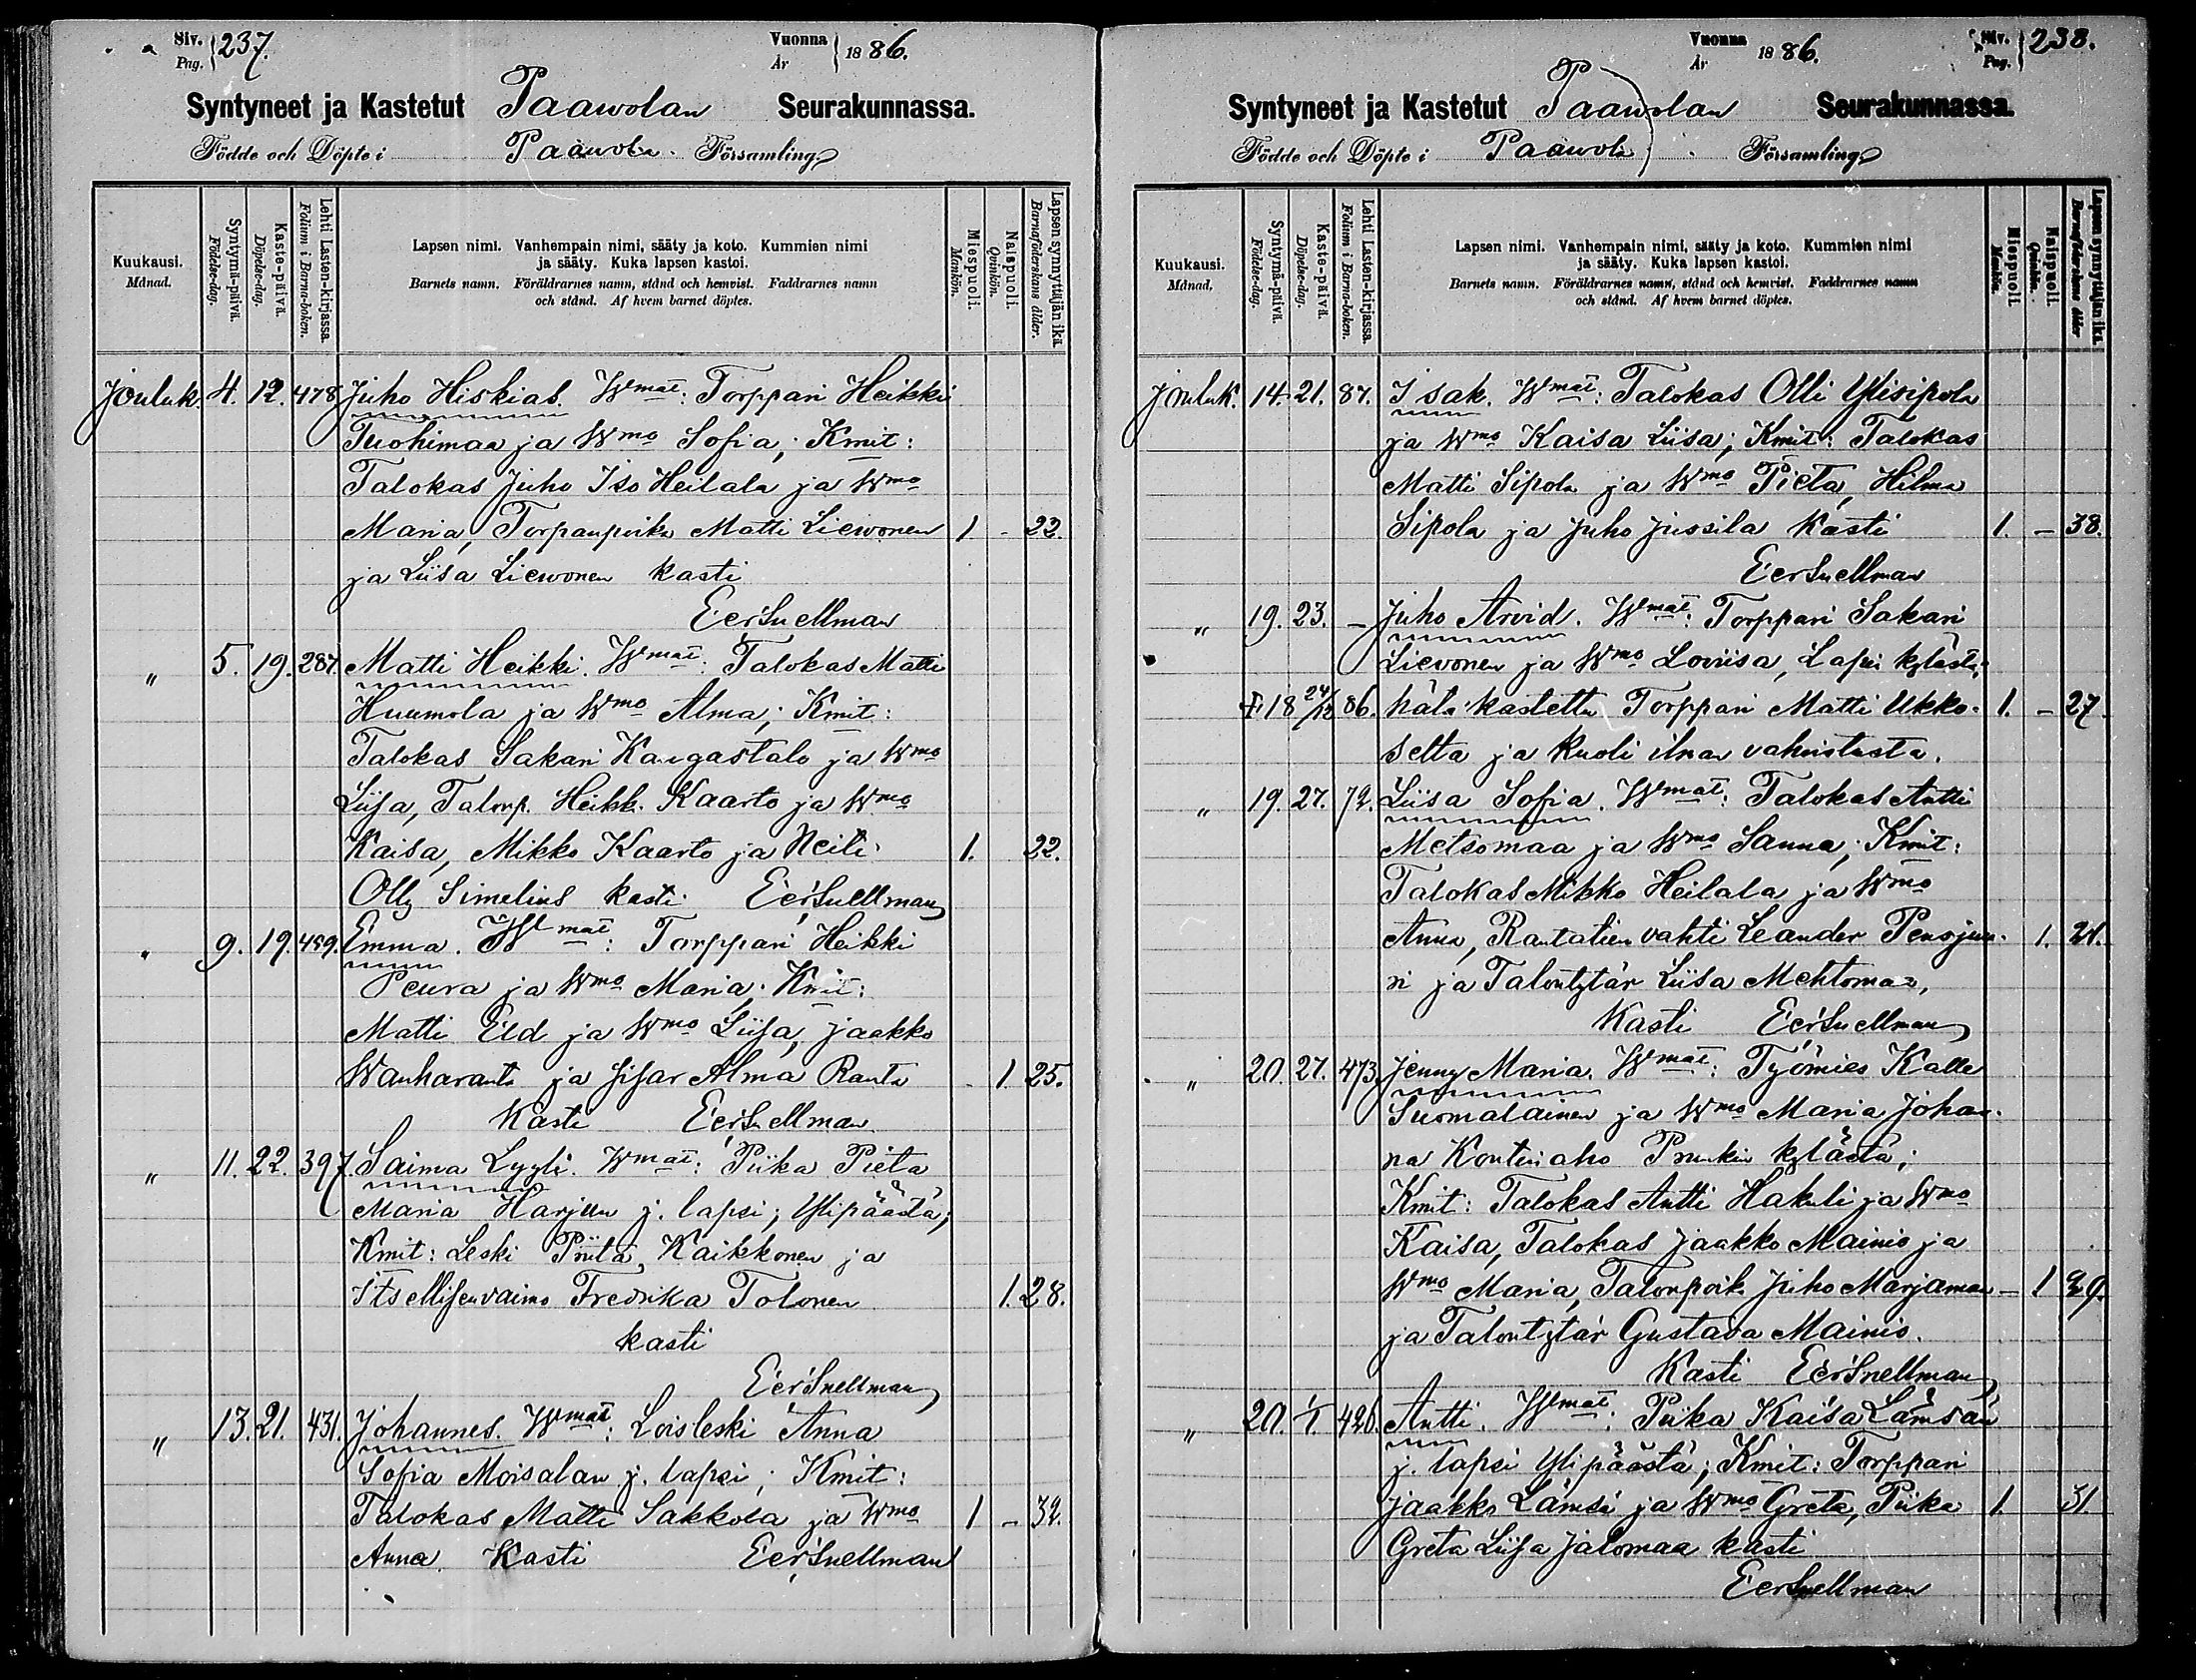 Siv. Pag. 237.
Vuonna År 1886.
Syntyneet ja Kastetut Paawolan Seurakunnassa.
Födde och Döpte i Paavola Församling
Kuukausi. Månad.
Syntymä-päivä. Födelse-dag.
Kaste-päivä. Döpelse-dag.
Lehti Lasten-kirjassa. Folium i Barna-boken.
Lapsen nimi. Vanhempain nimi, sääty ja koto. Kummien nimi
ja sääty. Kuka lapsen kastoi.
Barnets namn. Föräldrarnes namn, stånd och hemvist. Faddrarnes namn
och stånd. Af hvem barnet döptes.
Miespuoli. Mankön.
Naispuoli. Qvinkön.
Lapsen synnyttäjän ikä. Barnaföderskans ålder.
Jouluk. 4. 12. 478 Juho Hiskias. Wmat: Torppari Heikki
Tuohimaa ja Wmo Sofia; Kmit:
Talokas Juho Iso Heilala ja Wmo
Maria, Torpanpoika Matti Liewonen 1 - 22.
ja Liisa Liewonen kasti
EerSnellman
" 5. 19. 287. Matti Heikki. Wmat: Talokas Matti
Huumola ja Wmo Alma; Kmit:
Talokas Sakari Kangastalo ja Wmo
Liisa, Talonp. Heikk. Kaarto ja Wmo
Kaisa, Mikko Kaarto ja Neiti 1. 22.
Olly Simelius kasti EerSnellman
" 9. 19. 459. Emma. Wmat: Torppari Heikki
Peura ja Wmo Maria; Kmit:
Matti Eld ja Wmo Liisa, Jaakko
Wanharanta ja Sisar Alma Ranta 1. 25.
Kasti EerSnellman
" 11. 22. 397. Saima Lyyli. Wmat: Piika Pieta
Maria Harjun j. lapsi; Ylipäästä;
Kmit: Leski Priita Kaikkonen ja
Itsellisenvaimo Fredrika Tolonen 1. 28.
kasti
EerSnellman
" 13. 21. 431. Johannes. Wmat: Loisleski Anna
Sofia Moisalan j. lapsi; Kmit:
Talokas Matti Sakkola ja Wmo 1 - 32.
Anna. Kasti EerSnellman
Siv. Pag. 238.
Vuonna År 1886.
Syntyneet ja Kastetut Paawolan Seurakunnassa.
Födde och Döpte i Paavola Församling
Kuukausi. Månad.
Syntymä-päivä. Födelse-dag.
Kaste-päivä. Döpelse-dag.
Lehti Lasten-kirjassa. Folium i Barna-boken.
Lapsen nimi. Vanhempain nimi, sääty ja koto. Kummien nimi
ja sääty. Kuka lapsen kastoi.
Barnets namn. Föräldrarnes namn, stånd och hemvist. Faddrarnes namn
och stånd. Af hvem barnet döptes.
Miespuoli. Mankön.
Naispuoli. Qvinkön.
Lapsen synnyttäjän ikä. Barnaföderskans ålder
Jouluk. 14. 21. 87. Isak. Wmat: Talokas Olli Ylisipola
ja Wmo Kaisa Liisa; Kmit: Talokas
Matti Sipola ja Wmo Pieta, Hilma
Sipola ja Juho Jussila Kasti 1. - 38.
EerSnellman
" 19. 23. - Juho Arvid. Wmat: Torppari Sakari
Lievonen ja Wmo Loviisa, Lapin kylästä;
18 24/12 86. hätä kastettu Torppari Matti Ukko- 1. - 27.
selta ja kuoli ilman vahvistusta.
" 19. 27. 72. Liisa Sofia. Wmat: Talokas Antti
Metsomaa ja Wmo Sanna; Kmit:
Talokas Mikko Heilala ja Wmo
Anna, Rautatien vahti Leander Pensjun- 1. 21.
ri ja Talontytär Liisa Mehtomaa,
Kasti EerSnellman
" 20. 27. 473. Jenny Maria. Wmat: Työmies Kalle
Suomalainen ja Wmo Maria Johan-
na Kontiinaho Prunkin kylästä;
Kmit: Talokas Antti Hakuli ja Wmo
Kaisa, Talokas Jaakko Mainio ja
Wmo Maria, Talonpoik. Juho Marjamaa - 1 29.
ja Talontytär Gustava Mainio.
Kasti EerSnellman
" 20. 1/1. 426. Antti. Wmat: Piika Kaisa Lämsän
j. lapsi Ylipäästä; Kmit: Torppari
Jaakko Lämsä ja Wmo Greta, Piika 1. 31.
Greta Liisa Jalomaa kasti
EerSnellman